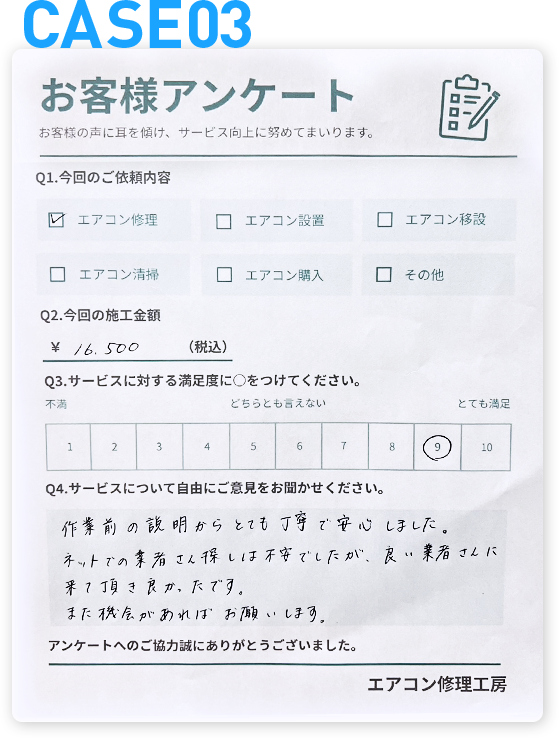 CASE03
お客様アンケート
お客様の声に耳を傾け、サービス向上に努めてまいります。
Q1.今回のご依頼内容
エアコン修理 エアコン設置 エアコン移設
エアコン清掃 エアコン購入 その他
Q2.今回の施工金額
¥ 16.500 (税込)
Q3.サービスに対する満足度に○をつけてください。
不満 どちらとも言えない とても満足
1 2 3 4 5 6 7 8 9 10
Q4.サービスについて自由にご意見をお聞かせください。
作業前の説明からとても丁寧で安心しました。
ネットでの業者さん探しは不安でしたが、良い業者さんに
来て頂き良かったです。
また機会があればお願いします。
アンケートへのご協力誠にありがとうございました。
エアコン修理工房